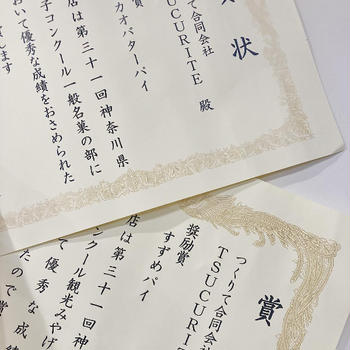 状
て合同会社
SUCURITE 殿
賞
カオバターパイ
店は第三十一回神奈川県
子コンクール一般名菓の部に
おいて優秀な成績をおさめられた
します
賞
つくりて合同会社
TSUCURIT
奨励賞
すずめパイ
店は第三十一回神
ンクール観光みやげ
て優秀な成績
たので賞